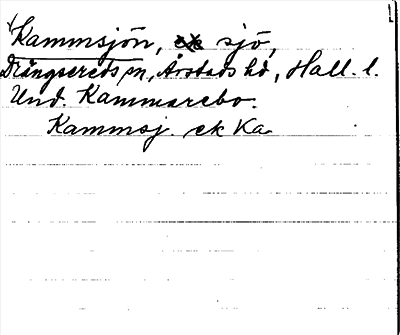 Kammsjön, sjö,
Drängsereds sn, Årstads hd, Hall. l.
Und. Kammarebo.
Kammsj. ek Ka